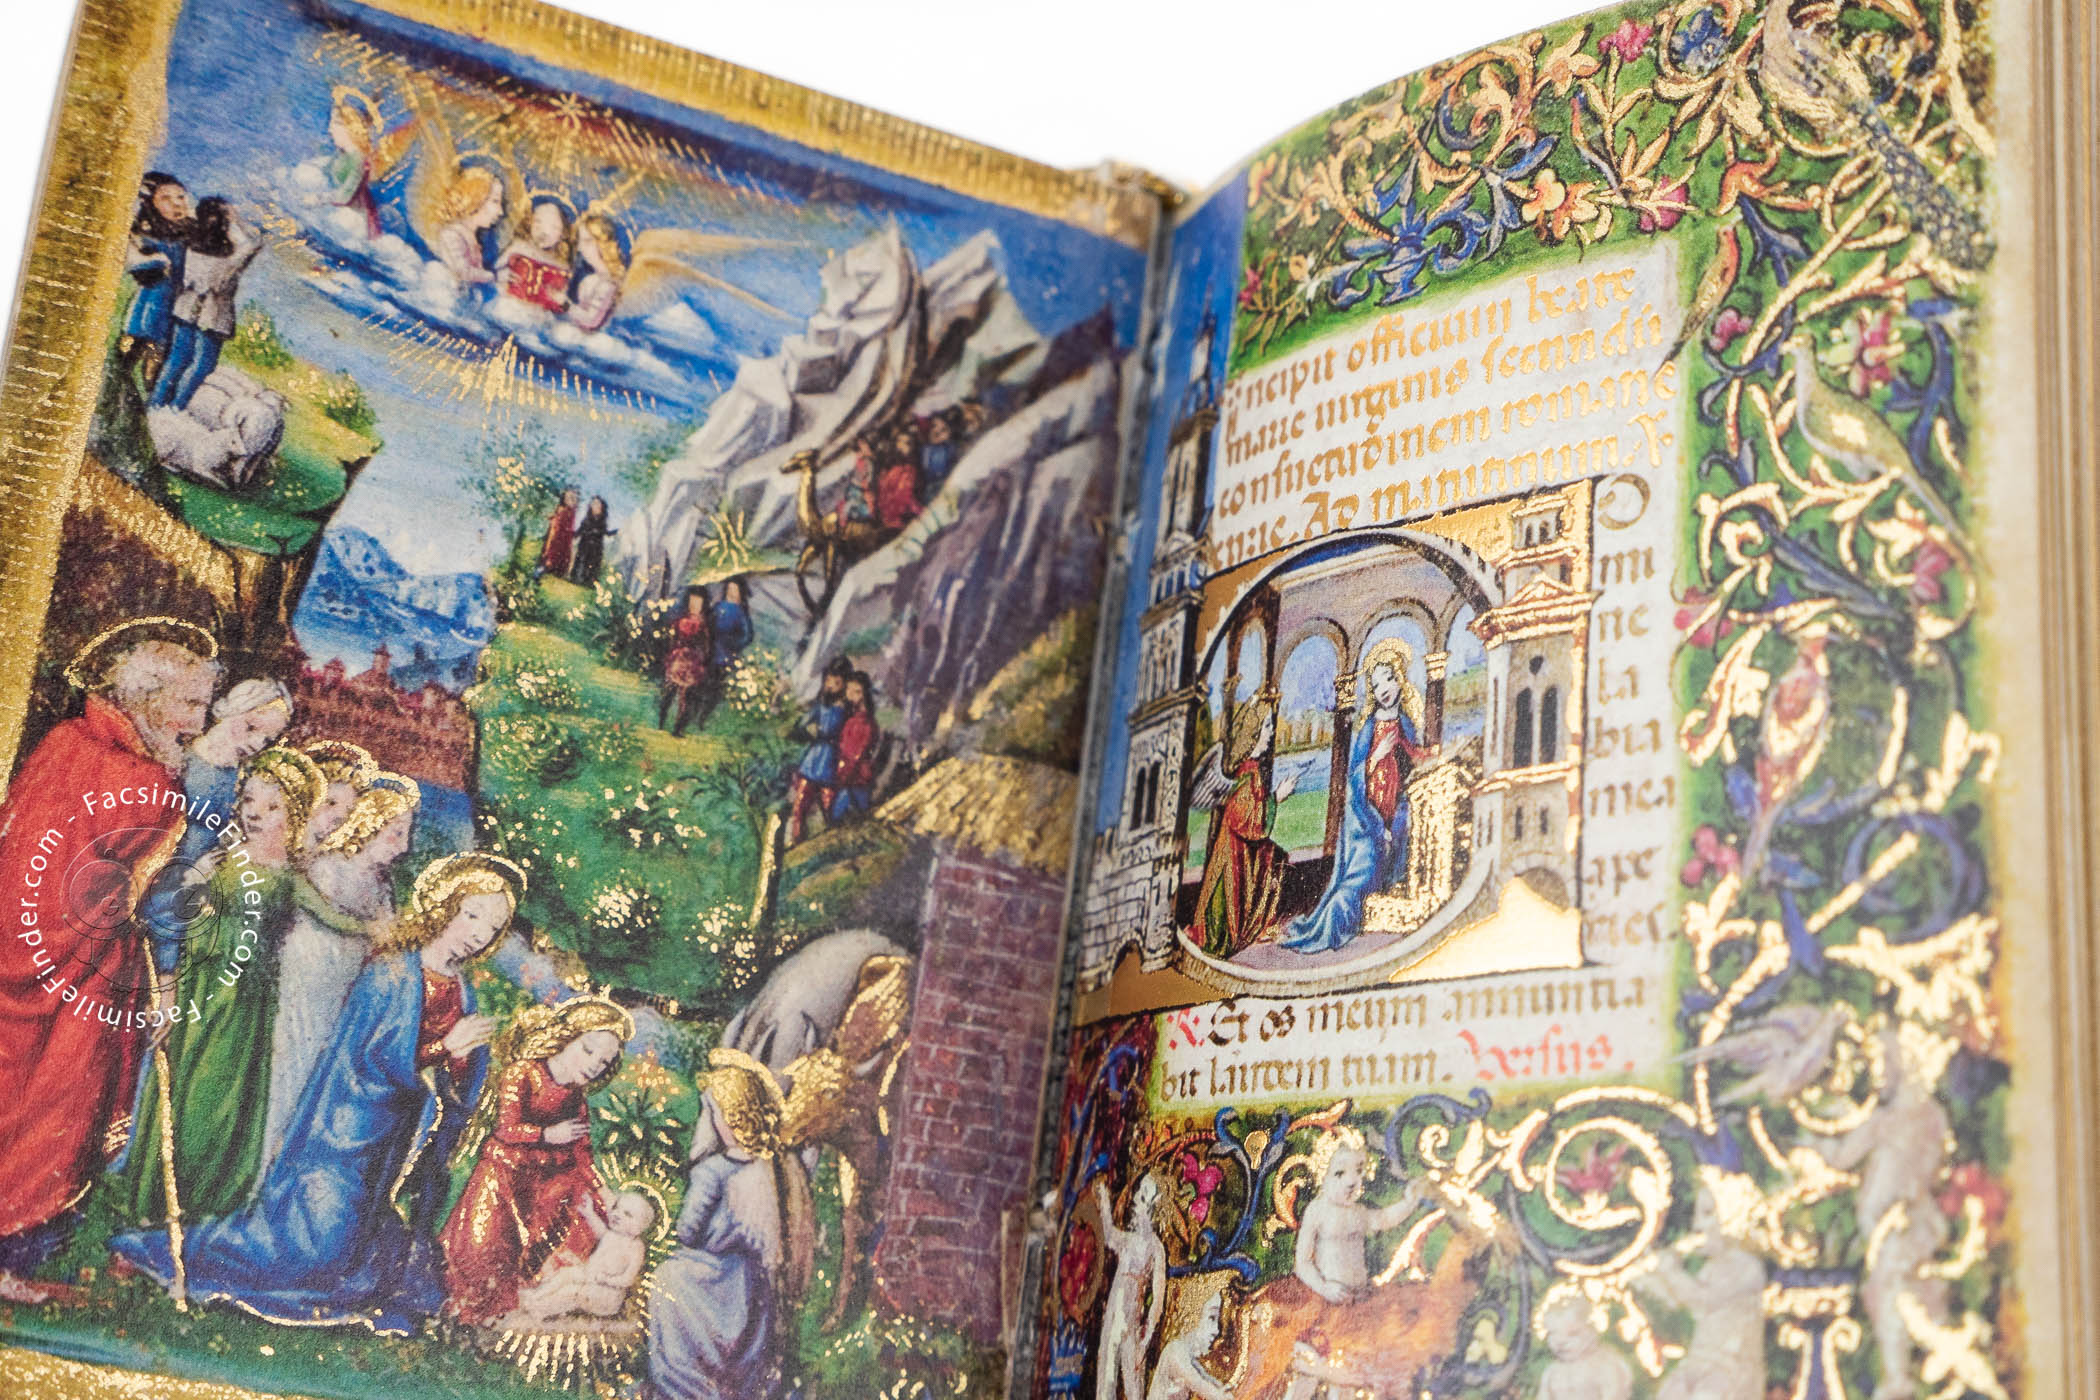 Incipit officium beate
marie virginis secundū
consuetudinem romane
Ad matutinum
O
mi
ne
la
bia
mea
ape
ries.
R. Et os meum annuntia
bit laudem tuam. Versus.
FacsimileFinder.com - FacsimileFinder.com - FacsimileFinder.com